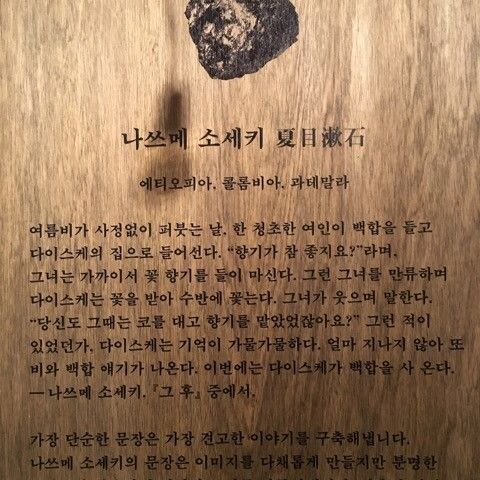 나쓰메 소세키 夏目漱石
에티오피아, 콜롬비아, 과테말라
여름비가 사정없이 퍼붓는 날, 한 청초한 여인이 백합을 들고
다이스케의 집으로 들어선다. “향기가 참 좋지요?”라며,
그녀는 가까이서 꽃 향기를 들이 마신다. 그런 그녀를 만류하며
다이스케는 꽃을 받아 수반에 꽂는다. 그녀가 웃으며 말한다.
“당신도 그때는 코를 대고 향기를 맡았었잖아요?” 그런 적이
있었던가, 다이스케는 기억이 가물가물하다. 얼마 지나지 않아 또
비와 백합 얘기가 나온다. 이번에는 다이스케가 백합을 사 온다.
—나쓰메 소세키, 『그 후』 중에서,
가장 단순한 문장은 가장 견고한 이야기를 구축해냅니다.
나쓰메 소세키의 문장은 이미지를 다채롭게 만들지만 분명한